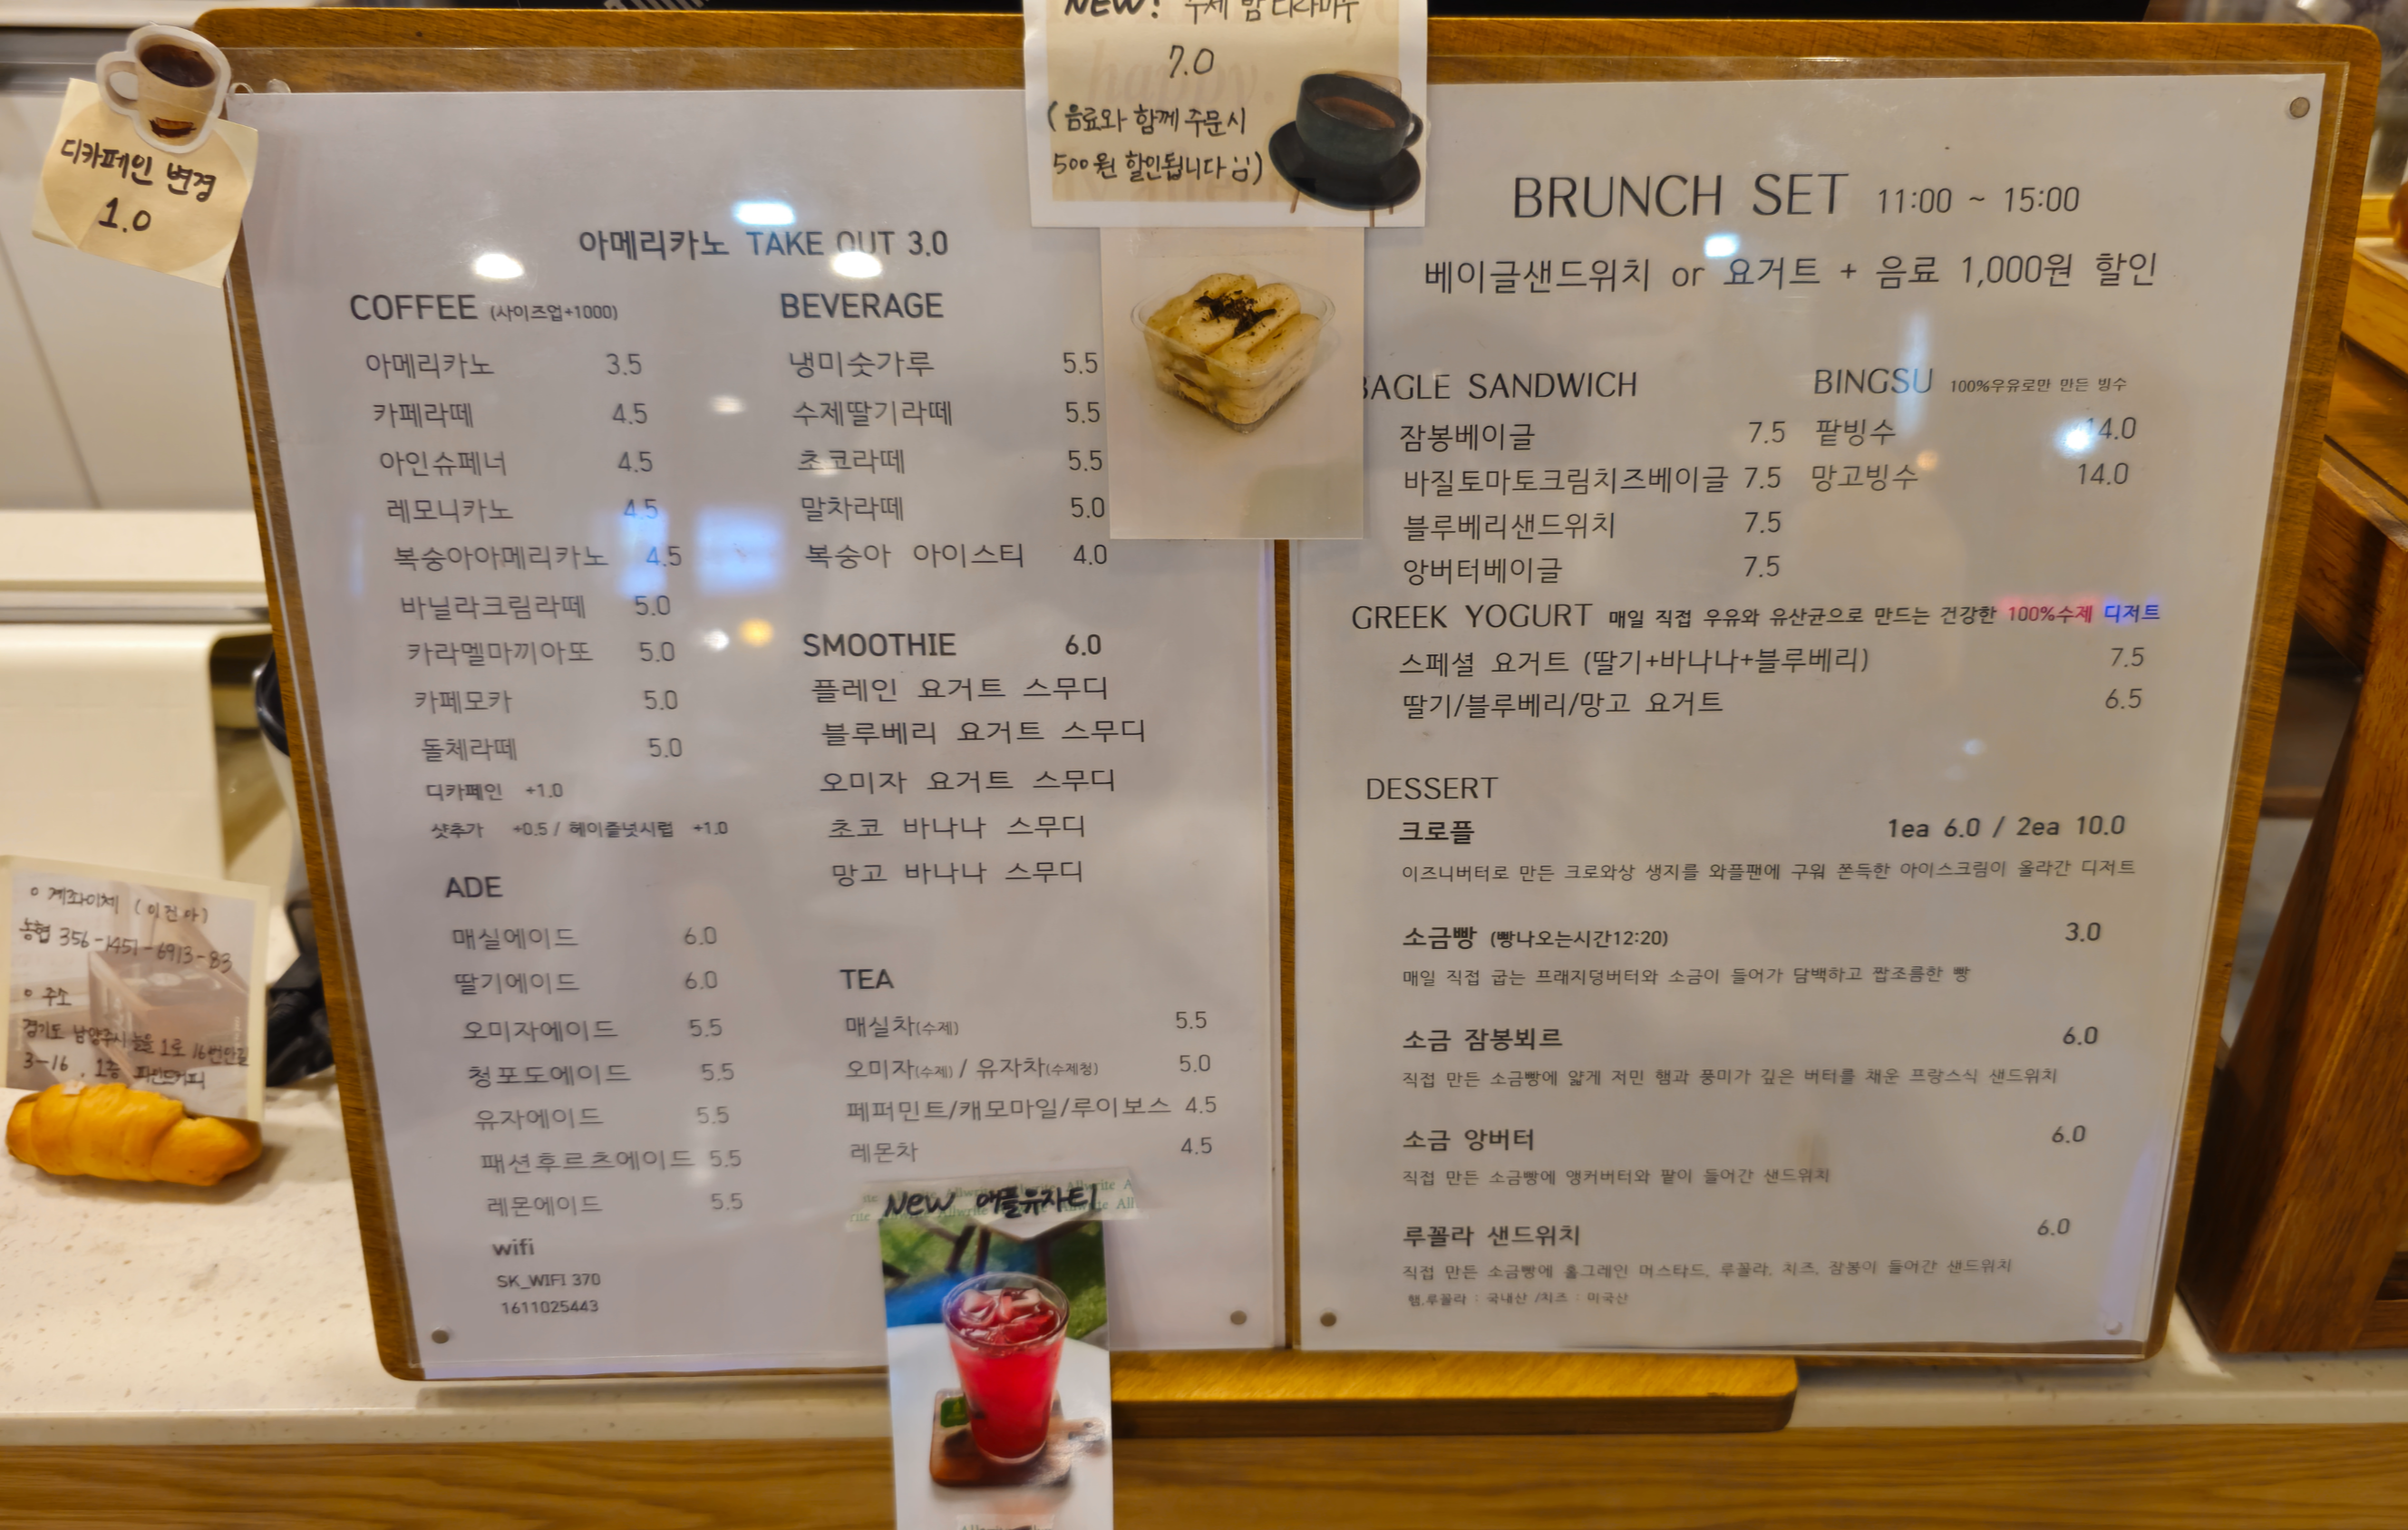 NEW! 수제 밤 티라미수
7.0
(음료와 함께 주문시
500원 할인됩니다
디카페인 변경
1.0
아메리카노 TAKE OUT 3.0
COFFEE (사이즈업+1000)
아메리카노 3.5
카페라떼 4.5
아인슈페너 4.5
레모니카노 4.5
복숭아아메리카노 4.5
바닐라크림라떼 5.0
카라멜마끼아또 5.0
카페모카 5.0
돌체라떼 5.0
디카페인 +1.0
샷추가 +0.5 / 헤이즐넛시럽 +1.0
ADE
매실에이드 6.0
딸기에이드 6.0
오미자에이드 5.5
청포도에이드 5.5
유자에이드 5.5
패션후르츠에이드 5.5
레몬에이드 5.5
wifi
SK_WIFI 370
1611025443
BEVERAGE
냉미숫가루 5.5
수제딸기라떼 5.5
초코라떼 5.5
말차라떼 5.0
복숭아 아이스티 4.0
SMOOTHIE 6.0
플레인 요거트 스무디
블루베리 요거트 스무디
오미자 요거트 스무디
초코 바나나 스무디
망고 바나나 스무디
TEA
매실차(수제) 5.5
오미자(수제) / 유자차(수제청) 5.0
페퍼민트/캐모마일/루이보스 4.5
레몬차 4.5
NEW 애플유자티
BRUNCH SET 11:00 ~ 15:00
베이글샌드위치 or 요거트 + 음료 1,000원 할인
BAGLE SANDWICH
잠봉베이글 7.5
바질토마토크림치즈베이글 7.5
블루베리샌드위치 7.5
앙버터베이글 7.5
BINGSU 100%우유로만 만든 빙수
팥빙수 14.0
망고빙수 14.0
GREEK YOGURT 매일 직접 우유와 유산균으로 만드는 건강한 100%수제 디저트
스페셜 요거트 (딸기+바나나+블루베리) 7.5
딸기/블루베리/망고 요거트 6.5
DESSERT
크로플 1ea 6.0 / 2ea 10.0
이즈니버터로 만든 크로와상 생지를 와플팬에 구워 쫀득한 아이스크림이 올라간 디저트
소금빵 (빵나오는시간12:20) 3.0
매일 직접 굽는 프래지덩버터와 소금이 들어가 담백하고 짭조름한 빵
소금 잠봉뵈르 6.0
직접 만든 소금빵에 얇게 저민 햄과 풍미가 깊은 버터를 채운 프랑스식 샌드위치
소금 앙버터 6.0
직접 만든 소금빵에 앵커버터와 팥이 들어간 샌드위치
루꼴라 샌드위치 6.0
직접 만든 소금빵에 홀그레인 머스타드, 루꼴라, 치즈, 잠봉이 들어간 샌드위치
햄,루꼴라 : 국내산 /치즈 : 미국산
계좌이체 (이건아)
농협 356-1451-6913-83
주소
경기도 남양주시 늘을 1로 16번안길
3-16, 1층 파인드커피